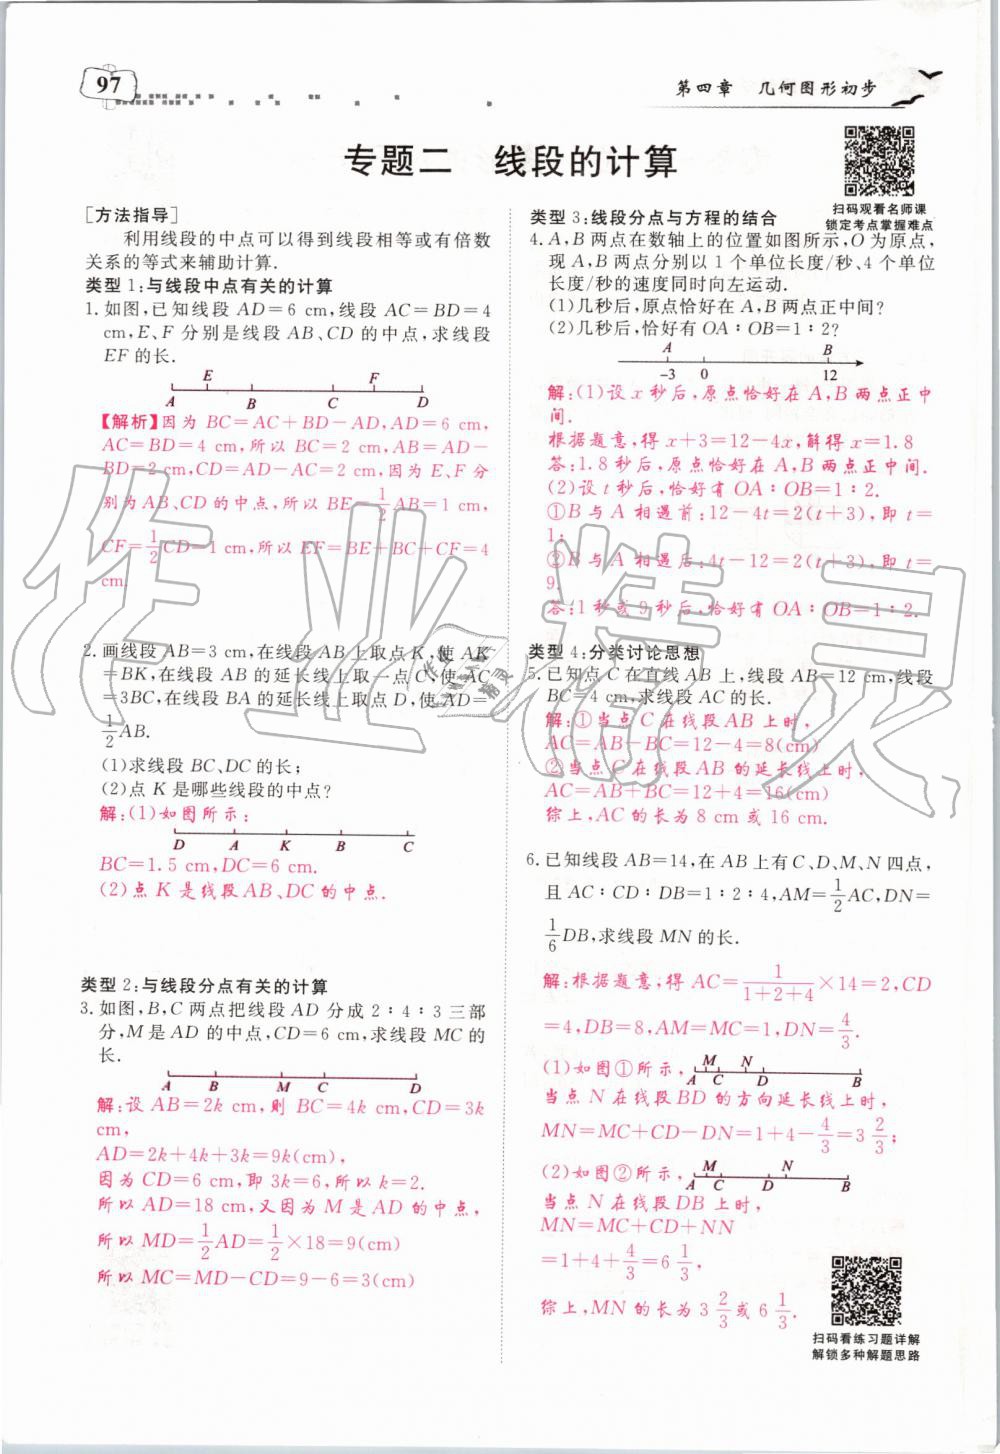 97
第四章　几何图形初步
专题二　线段的计算
扫码观看名师课
锁定考点掌握难点
[方法指导]
利用线段的中点可以得到线段相等或有倍数
关系的等式来辅助计算.
类型 1:与线段中点有关的计算
1. 如图,已知线段 AD=6 cm,线段 AC=BD=4
cm,E、F 分别是线段 AB、CD 的中点,求线段
EF 的长.
E F
A B C D
【解析】因为 BC=AC+BD-AD,AD=6 cm,
AC=BD=4 cm,所以 BC=2 cm,AB=AD-
BD=2 cm,CD=AD-AC=2 cm,因为 E、F 分
别为 AB、CD 的中点,所以 BE=1/2AB=1 cm,
CF=1/2CD=1 cm,所以 EF=BE+BC+CF=4
cm.
2. 画线段 AB=3 cm,在线段 AB 上取点 K,使 AK
=BK,在线段 AB 的延长线上取一点 C,使 AC
=3BC,在线段 BA 的延长线上取点 D,使 AD=
1/2 AB.
(1)求线段 BC、DC 的长;
(2)点 K 是哪些线段的中点?
解:(1)如图所示:
D A K B C
BC=1.5 cm,DC=6 cm.
(2)点 K 是线段 AB、DC 的中点.
类型 2:与线段分点有关的计算
3. 如图,B,C 两点把线段 AD 分成 2∶4∶3 三部
分,M 是 AD 的中点,CD=6 cm,求线段 MC 的
长.
A B M C D
解:设 AB=2k cm,则 BC=4k cm,CD=3k
cm,
AD=2k+4k+3k=9k(cm),
因为 CD=6 cm,即 3k=6,所以 k=2.
所以 AD=18 cm,又因为 M 是 AD 的中点,
所以 MD=1/2AD=1/2×18=9(cm)
所以 MC=MD-CD=9-6=3(cm)
类型 3:线段分点与方程的结合
4. A,B 两点在数轴上的位置如图所示,O 为原点,
现 A,B 两点分别以 1 个单位长度/秒、4 个单位
长度/秒的速度同时向左运动.
(1)几秒后,原点恰好在 A,B 两点正中间?
(2)几秒后,恰好有 OA∶OB=1∶2?
A B
-3 0 12
解:(1)设 x 秒后,原点恰好在 A,B 两点正中
间.
根据题意,得 x+3=12-4x,解得 x=1.8
答:1.8 秒后,原点恰好在 A,B 两点正中间.
(2)设 t 秒后,恰好有 OA∶OB=1∶2.
①B 与 A 相遇前:12-4t=2(t+3),即 t=
1;
②B 与 A 相遇后:4t-12=2(t+3),即 t=
9.
答:1 秒或 9 秒后,恰好有 OA∶OB=1∶2.
类型 4:分类讨论思想
5. 已知点 C 在直线 AB 上,线段 AB=12 cm,线段
BC=4 cm,求线段 AC 的长.
解:①当点 C 在线段 AB 上时,
AC=AB-BC=12-4=8(cm)
②当点 C 在线段 AB 的延长线上时,
AC=AB+BC=12+4=16(cm)
综上,AC 的长为 8 cm 或 16 cm.
6. 已知线段 AB=14,在 AB 上有 C、D、M、N 四点,
且 AC∶CD∶DB=1∶2∶4,AM=1/2AC,DN=
1/6DB,求线段 MN 的长.
解:根据题意,得 AC=1/(1+2+4)×14=2,CD
=4,DB=8,AM=MC=1,DN=4/3.
(1)如图①所示,
M N
A C D B
当点 N 在线段 BD 的方向延长线上时,
MN=MC+CD-DN=1+4-4/3=3 2/3;
(2)如图②所示,
M N
A C D B
当点 N 在线段 DB 上时,
MN=MC+CD+NN
=1+4+4/3=6 1/3,
综上,MN 的长为 3 2/3 或 6 1/3.
扫码看练习题详解
解锁多种解题思路
作业精灵